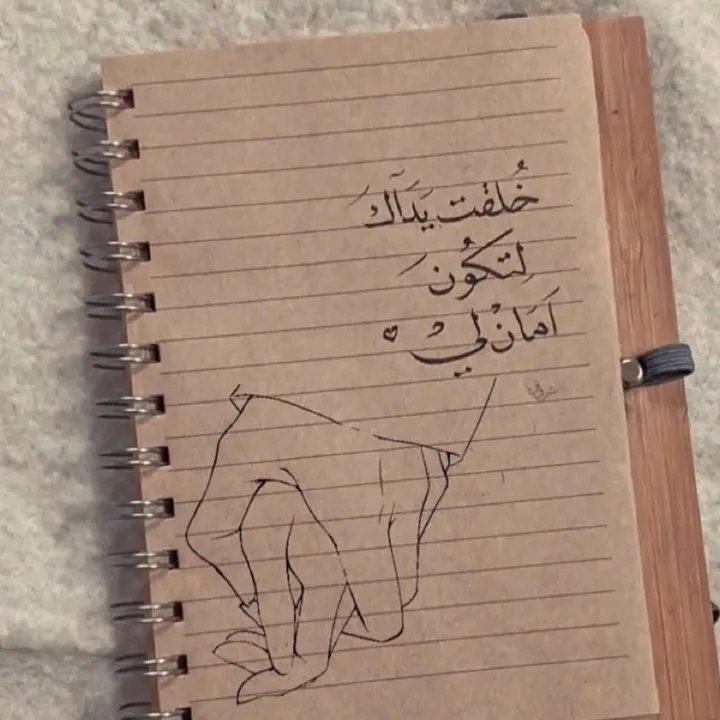 خُلقت يَدَاَكَ
لِتَكُونَ
اَمَانْ لِيْ